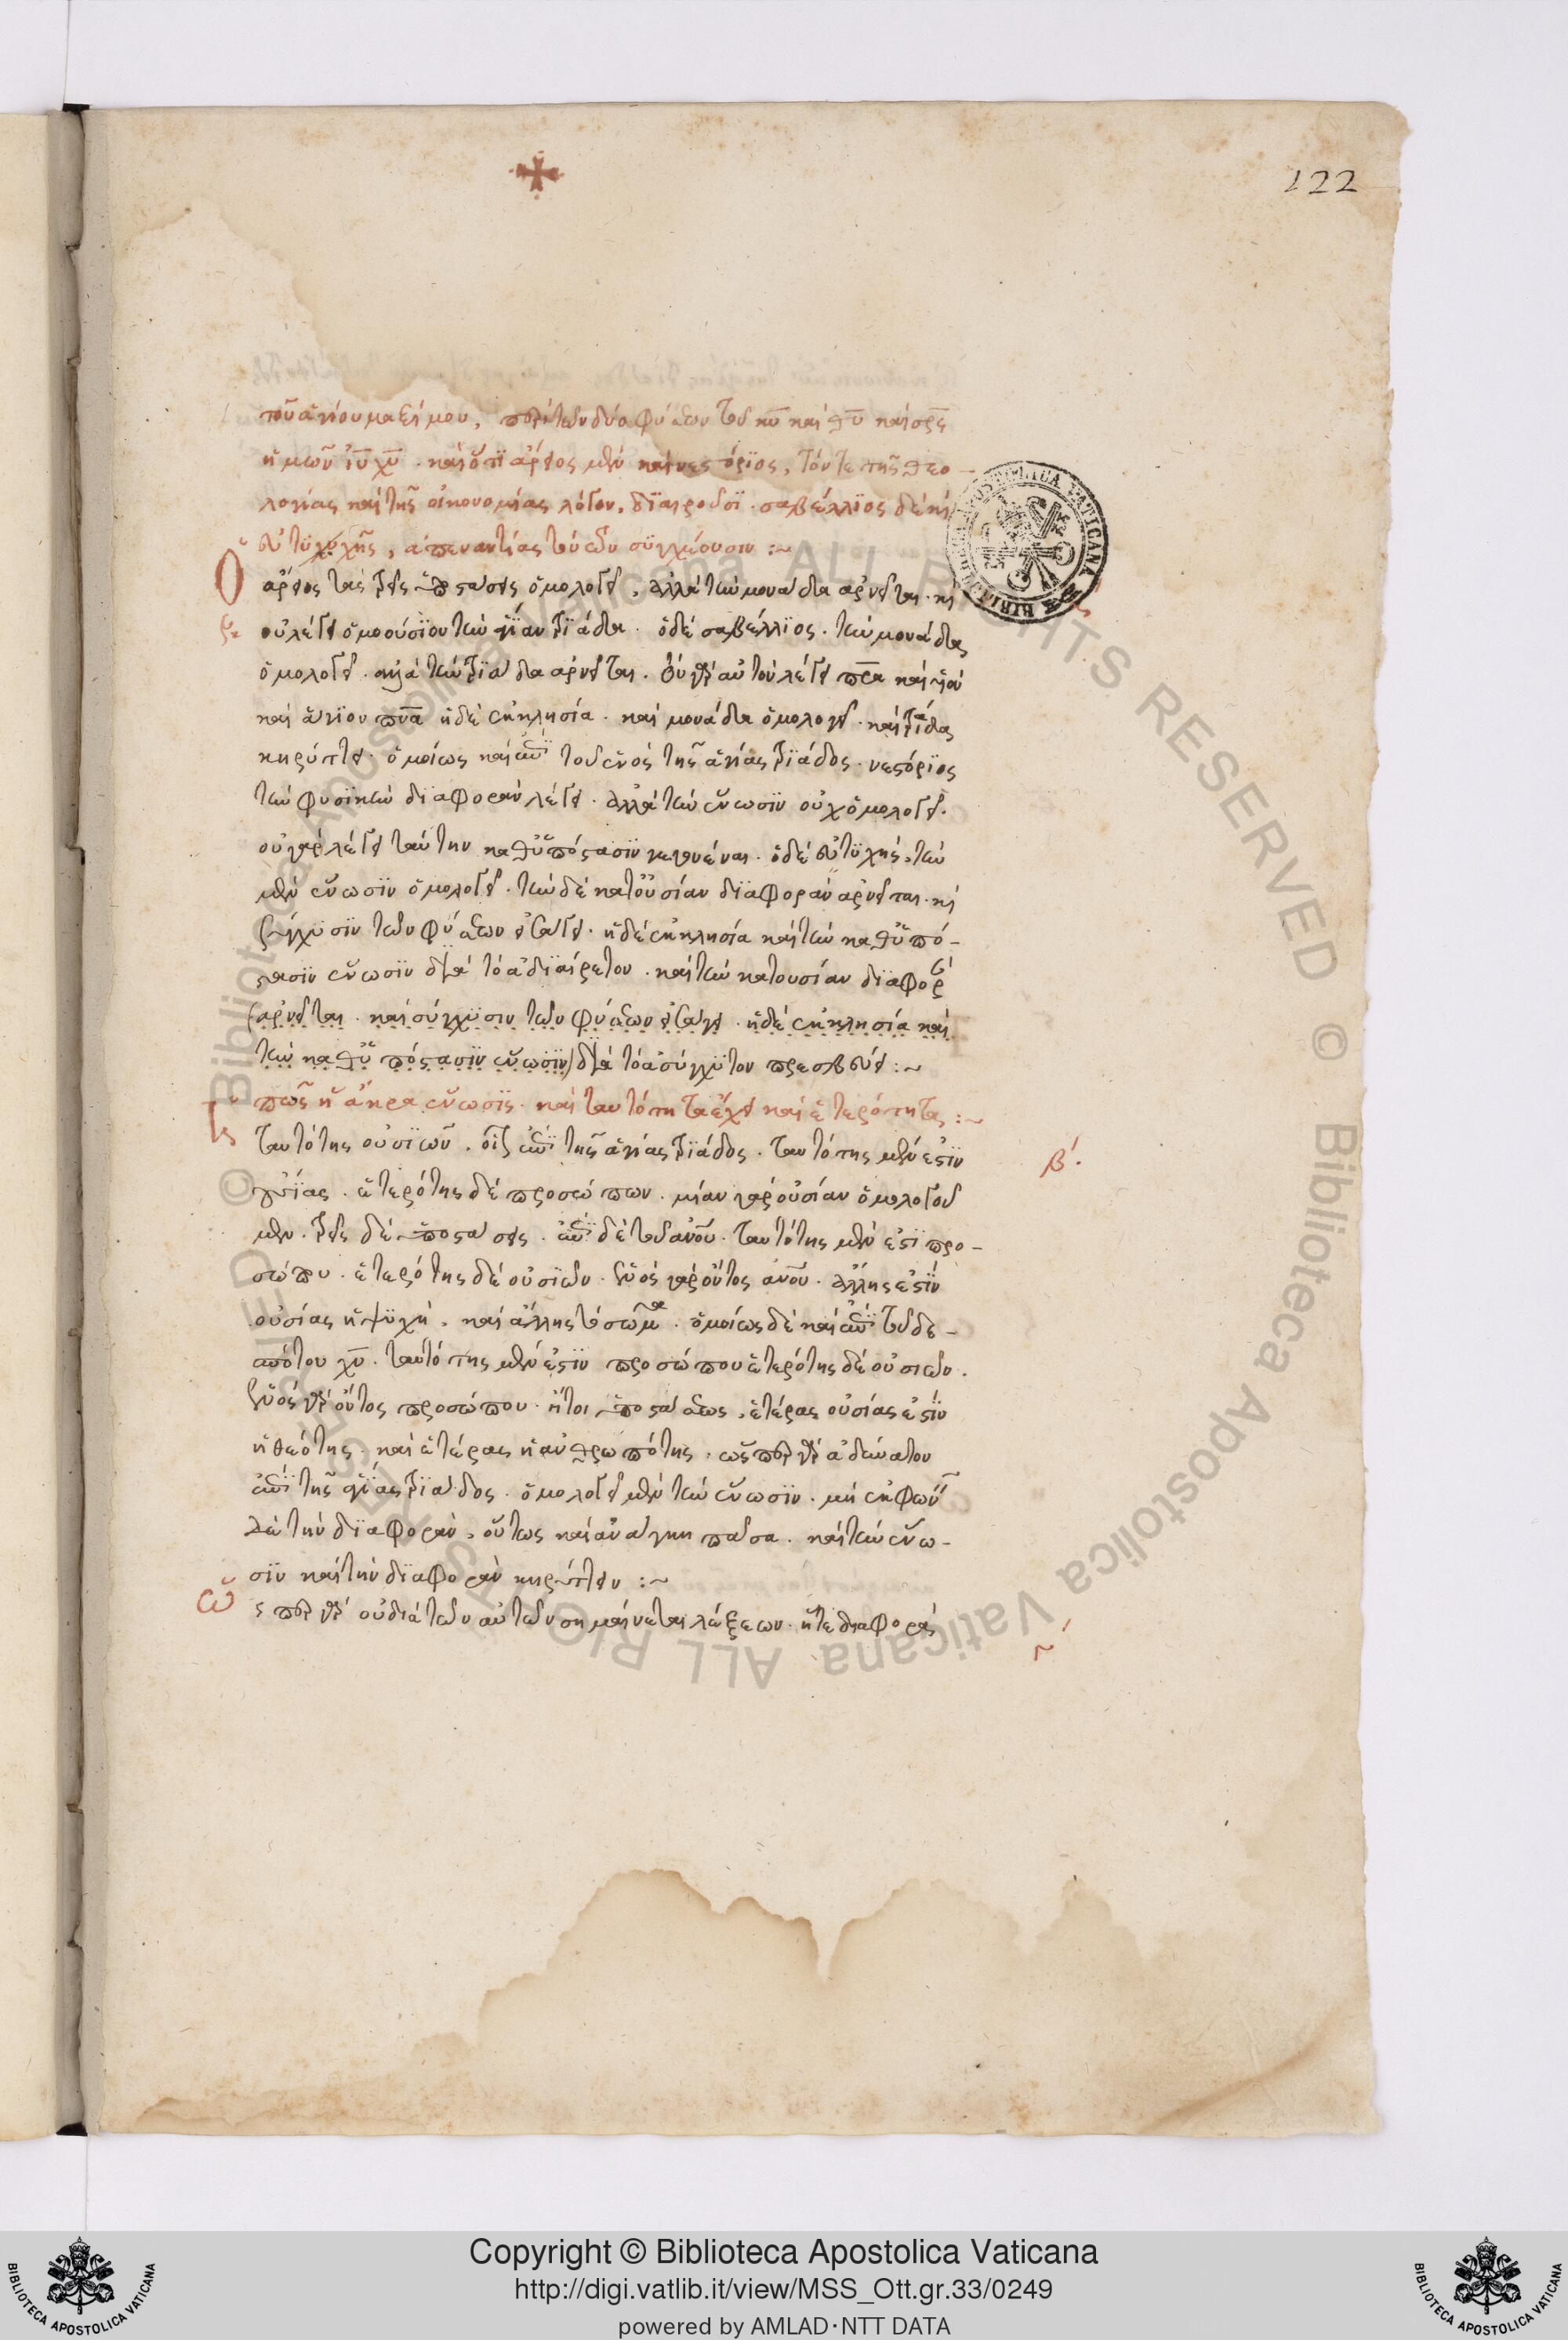 122
τοῦ ἁγίου μαξίμου, περὶ τῶν δύο φύσεων τοῦ κυ καὶ θυ καὶ σρς
ἡμῶν ιυ χυ. καὶ ὅτι ἄρειος μὲν καὶ νεστόριος, τόν τε τῆς θεο-
λογίας καὶ τῆς οἰκονομίας λόγον, διαιροῦσι. σαβέλλιος δὲ καὶ
εὐτυχὴς, ἀπεναντίας
Ὁ ἄρειος τὰς τρεῖς ὑποστάσεις ὁμολογεῖ, ἀλλὰ τὴν μονάδα ἀρνεῖται. καὶ
οὐ λέγει ὁμοούσιον τὴν ἁγίαν τριάδα. ὁ δὲ σαβέλλιος. τὴν μονάδα
ὁμολογεῖ. ἀλλὰ τὴν τριάδα ἀρνεῖται. τὸν γὰρ αὐτὸν λέγει πρα καὶ υἱὸν
καὶ ἅγιον πνα ἡ δὲ ἐκκλησία. καὶ μονάδα ὁμολογεῖ. καὶ τριάδα
κηρύττει. ὁμοίως καὶ ἐπὶ τοῦ ἑνὸς τῆς ἁγίας τριάδος. νεστόριος
τὴν φυσικὴν διαφορὰν λέγει. ἀλλὰ τὴν ἕνωσιν οὐχ ὁμολογεῖ.
οὐ γὰρ λέγει ταύτην καθ' ὑπόστασιν γεγονέναι. ὁ δὲ εὐτυχὴς, τὴν
μὲν ἕνωσιν ὁμολογεῖ. τὴν δὲ κατ' οὐσίαν διαφορὰν ἀρνεῖται. καὶ
σύγχυσιν τῶν φύσεων εἰσάγει. ἡ δὲ ἐκκλησία καὶ τὴν καθ' ὑπό-
στασιν ἕνωσιν διὰ τὸ ἀδιαίρετον. καὶ τὴν κατουσίαν διαφορὰν
(ἀρνεῖται. καὶ σύγχυσιν τῶν φύσεων εἰσάγει. ἡ δὲ ἐκκλησία καὶ
τὴν καθ' ὑπόστασιν ἕνωσιν) διὰ τὸ ἀσύγχυτον πρεσβεύει:~
πῶς ἡ ἄκρα ἕνωσις. καὶ ταυτότητα ἔχει καὶ ἑτερότητα:~
Ταυτότης οὐσιῶν. ἐπὶ τῆς ἁγίας τριάδος. ταυτότης μέν ἐστιν
β΄.
οὐσίας. ἑτερότης δὲ προσώπων. μίαν γὰρ οὐσίαν ὁμολογοῦ
μεν. τρεῖς δὲ ὑποστάσεις. ἐπὶ δὲ τοῦ ἀνου. ταυτότης μέν ἐστι προ-
σώπου. ἑτερότης δὲ οὐσιῶν. ἑνὸς γὰρ ὄντος ἀνου. ἄλλης ἐστὶν
οὐσίας ἡ ψυχὴ. καὶ ἄλλης τὸ σῶμα. ὁμοίως δὲ καὶ ἐπὶ τοῦ δε-
σπότου χυ. ταυτότης μέν ἐστιν προσώπου ἑτερότης δὲ οὐσιῶν.
ἑνὸς γὰρ ὄντος προσώπου. ἤτοι ὑποστάσεως, ἑτέρας οὐσίας ἐστὶν
ἡ θεότης. καὶ ἑτέρας ἡ ἀνθρωπότης. ὥσπερ γὰρ ἀδύνατον
ἐπὶ τῆς ἁγίας τριάδος. ὁμολογεῖν μὲν τὴν ἕνωσιν. μὴ ἐκφων
δὲ τὴν διαφορὰν, οὕτως καὶ ἀνάγκη πᾶσα. καὶ τὴν ἕνω-
σιν καὶ τὴν διαφορὰν κηρύττειν:~
Ὥσπερ γὰρ οὐ διὰ τῶν αὐτῶν σημαίνεται λέξεων. ἥτε διαφορὰ
BIBLIOTECA APOSTOLICA VATICANA
© Biblioteca Apostolica Vaticana ALL RIGHTS RESERVED
Copyright © Biblioteca Apostolica Vaticana
http://digi.vatlib.it/view/MSS_Ott.gr.33/0249
powered by AMLAD·NTT DATA